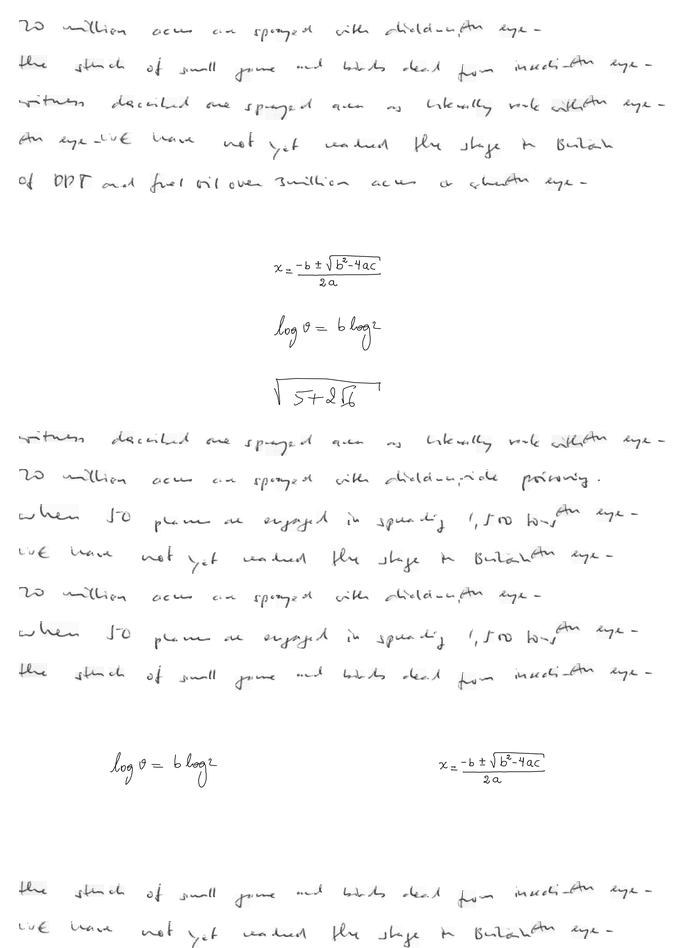 20 million acres are sprayed with dieldrin, An eye-
the stench of small game and birds dead from insecti- An eye-
witness described one sprayed area as literally reek with An eye-
An eye- WE have not yet reached the stage in Britain
of DDT and fuel oil over 3 million acres or when An eye-
x = \frac{-b ± \sqrt{b^2-4ac}}{2a}
log v = b log 2
\sqrt{5+2\sqrt{6}}
witness described one sprayed area as literally reek with An eye-
20 million acres are sprayed with dieldrin, side poisoning.
when 50 planes are engaged in spreading 1,500 tons An eye-
WE have not yet reached the stage in Britain An eye-
20 million acres are sprayed with dieldrin, An eye-
when 50 planes are engaged in spreading 1,500 tons An eye-
the stench of small game and birds dead from insecti- An eye-
log v = b log 2 x = \frac{-b ± \sqrt{b^2-4ac}}{2a}
the stench of small game and birds dead from insecti- An eye-
WE have not yet reached the stage in Britain An eye-